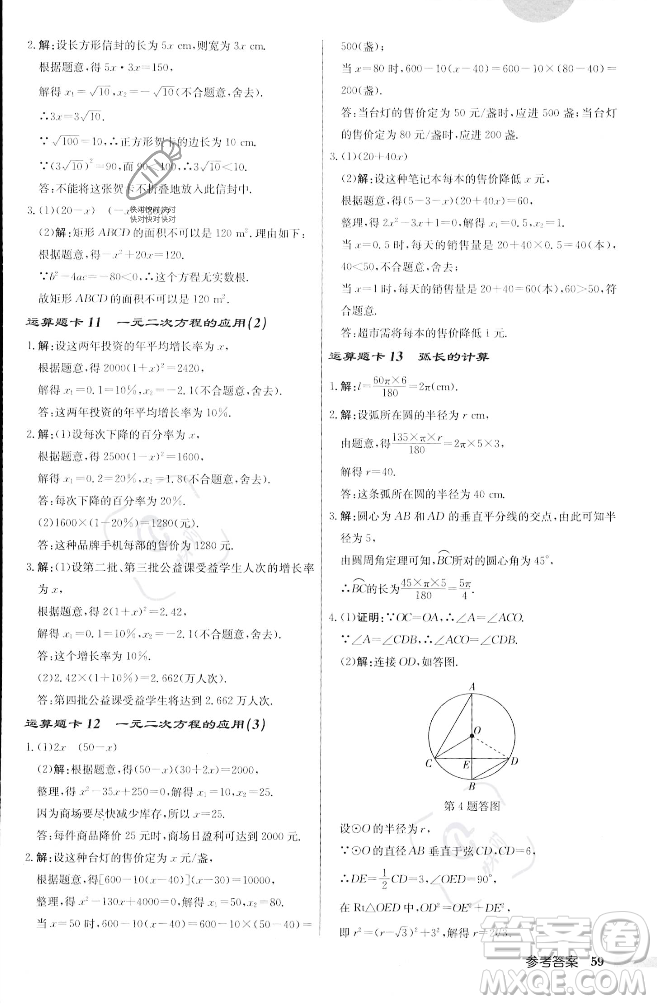 2.解:设长方形信封的长为 5x cm,则宽为 3x cm.
根据题意,得 5x·3x=150,
解得 x₁=√10,x₂=-√10(不合题意,舍去).
∴3x=3√10.
∵√100=10,∴正方形贺卡的边长为 10 cm.
∵(3√10)²=90,而 90<100,∴3√10<10,
答:不能将这张贺卡不折叠地放入此信封中.
3.(1)(20-x)
(2)解:矩形 ABCD 的面积不可以是 120 m².理由:
根据题意,得-x²+20x=120,
∵b²-4ac=-80<0,∴这个方程无实数根.
故矩形 ABCD 的面积不可以是 120 m².
运算题卡 11 一元二次方程的应用(2)
1.解:设这两年投资的年平均增长率为 x,
根据题意,得 2000(1+x)²=2420,
解得 x₁=0.1=10%,x₂=-2.1(不合题意,舍去).
答:这两年投资的年平均增长率为 10%.
2.解:(1)设每次下降的百分率为 x,
根据题意,得 2500(1-x)²=1600,
解得 x₁=0.2=20%,x₂=1.8(不合题意,舍去).
答:每次下降的百分率为 20%.
(2)1600×(1-20%)=1280(元).
答:这种品牌手机每部的售价为 1280 元.
3.解:(1)设第二批、第三批公益课受益学生人次的增长率
为 x,
根据题意,得 2(1+x)²=2.42,
解得 x₁=0.1=10%,x₂=-2.1(不合题意,舍去).
答:这个增长率为 10%.
(2)2.42(1+10%)=2.662(万人次).
答:第四批公益课受益学生将达到 2.662 万人次.
运算题卡 12 一元二次方程的应用(3)
1.(1)2x (50-x)
(2)解:根据题意,得(50-x)(30+2x)=2000,
整理,得 x²-35x+250=0,解得 x₁=10,x₂=25.
因为商场要尽快减少库存,所以 x=25.
答:每件商品降价 25 元时,商场日盈利可达到
2.解:设这种台灯的售价定为 x 元/盏,
根据题意,得[600-10(x-40)](x-30)=10000,
整理,得 x²-130x+4000=0,解得 x₁=50,x₂=80.
当 x=50 时,600-10(x-40)=600-10×(50-40)=
500(盏);
当 x=80 时,600-10(x-40)=600-10×(80-40)=
200(盏).
答:当台灯的售价定为 50 元/盏时,应进 500 盏;当台灯
的售价定为 80 元/盏时,应进 200 盏.
3.(1)(20+40x)
(2)解:设这种笔记本每本的售价降低 x 元,
根据题意,得(5-3-x)(20+40x)=60,
整理,得 2x²-3x+1=0,解得 x₁=0.5,x₂=1.
当 x=0.5 时,每天的销售量是 20+40x=20+40×0.5=
40<50,不合题意,舍去;
当 x=1 时,每天的销售量是 20+40x=20+40×1=
60>50,符合题意.
答:超市需将每本的售价降低 1 元.
运算题卡 13 弧长的计算
1.解:l=60π×6/180=2π(cm).
2.解:设弧所在圆的半径为 r cm,
由题意,得135×π×r/180=2π×5×3,
解得 r=40.
答:这条弧所在圆的半径为 40 cm.
3.解:圆心为 AB 和 AD 的垂直平分线的交点,由勾股定理得半
径为 5,
由圆周角定理可知,BC所对的圆心角为 45°,
∴BC的长为45×π×5/180=5π/4.
4.(1)证明:∵OC=OA,∴∠A=∠ACO.
∵∠A=∠CDB,∴∠ACO=∠CDB.
(2)解:连接 OD,如答图.
A
O
C
E
D
B
第 4 题答图
设⊙O 的半径为 r,
∵⊙O 的直径 AB 垂直于弦 CD,
∴DE=1/2CD=√3,∠OED=90°.
在 Rt△OED 中,
即 r²=(r-√3)²+(2√3)²,解得 r=2√3.
参考答案 59
快对快对快对
快对快对快对